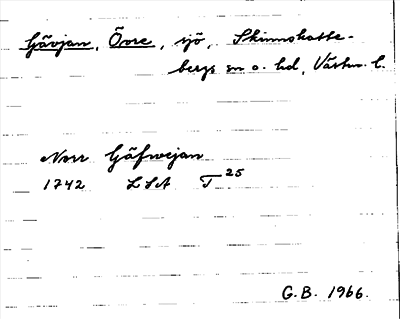 Gävjan, Övre, sjö, Skinnskatte-
bergs sn o. hd, Västm. l.
Norr Gäfwejan
1742 LSA T 25
G.B. 1966.